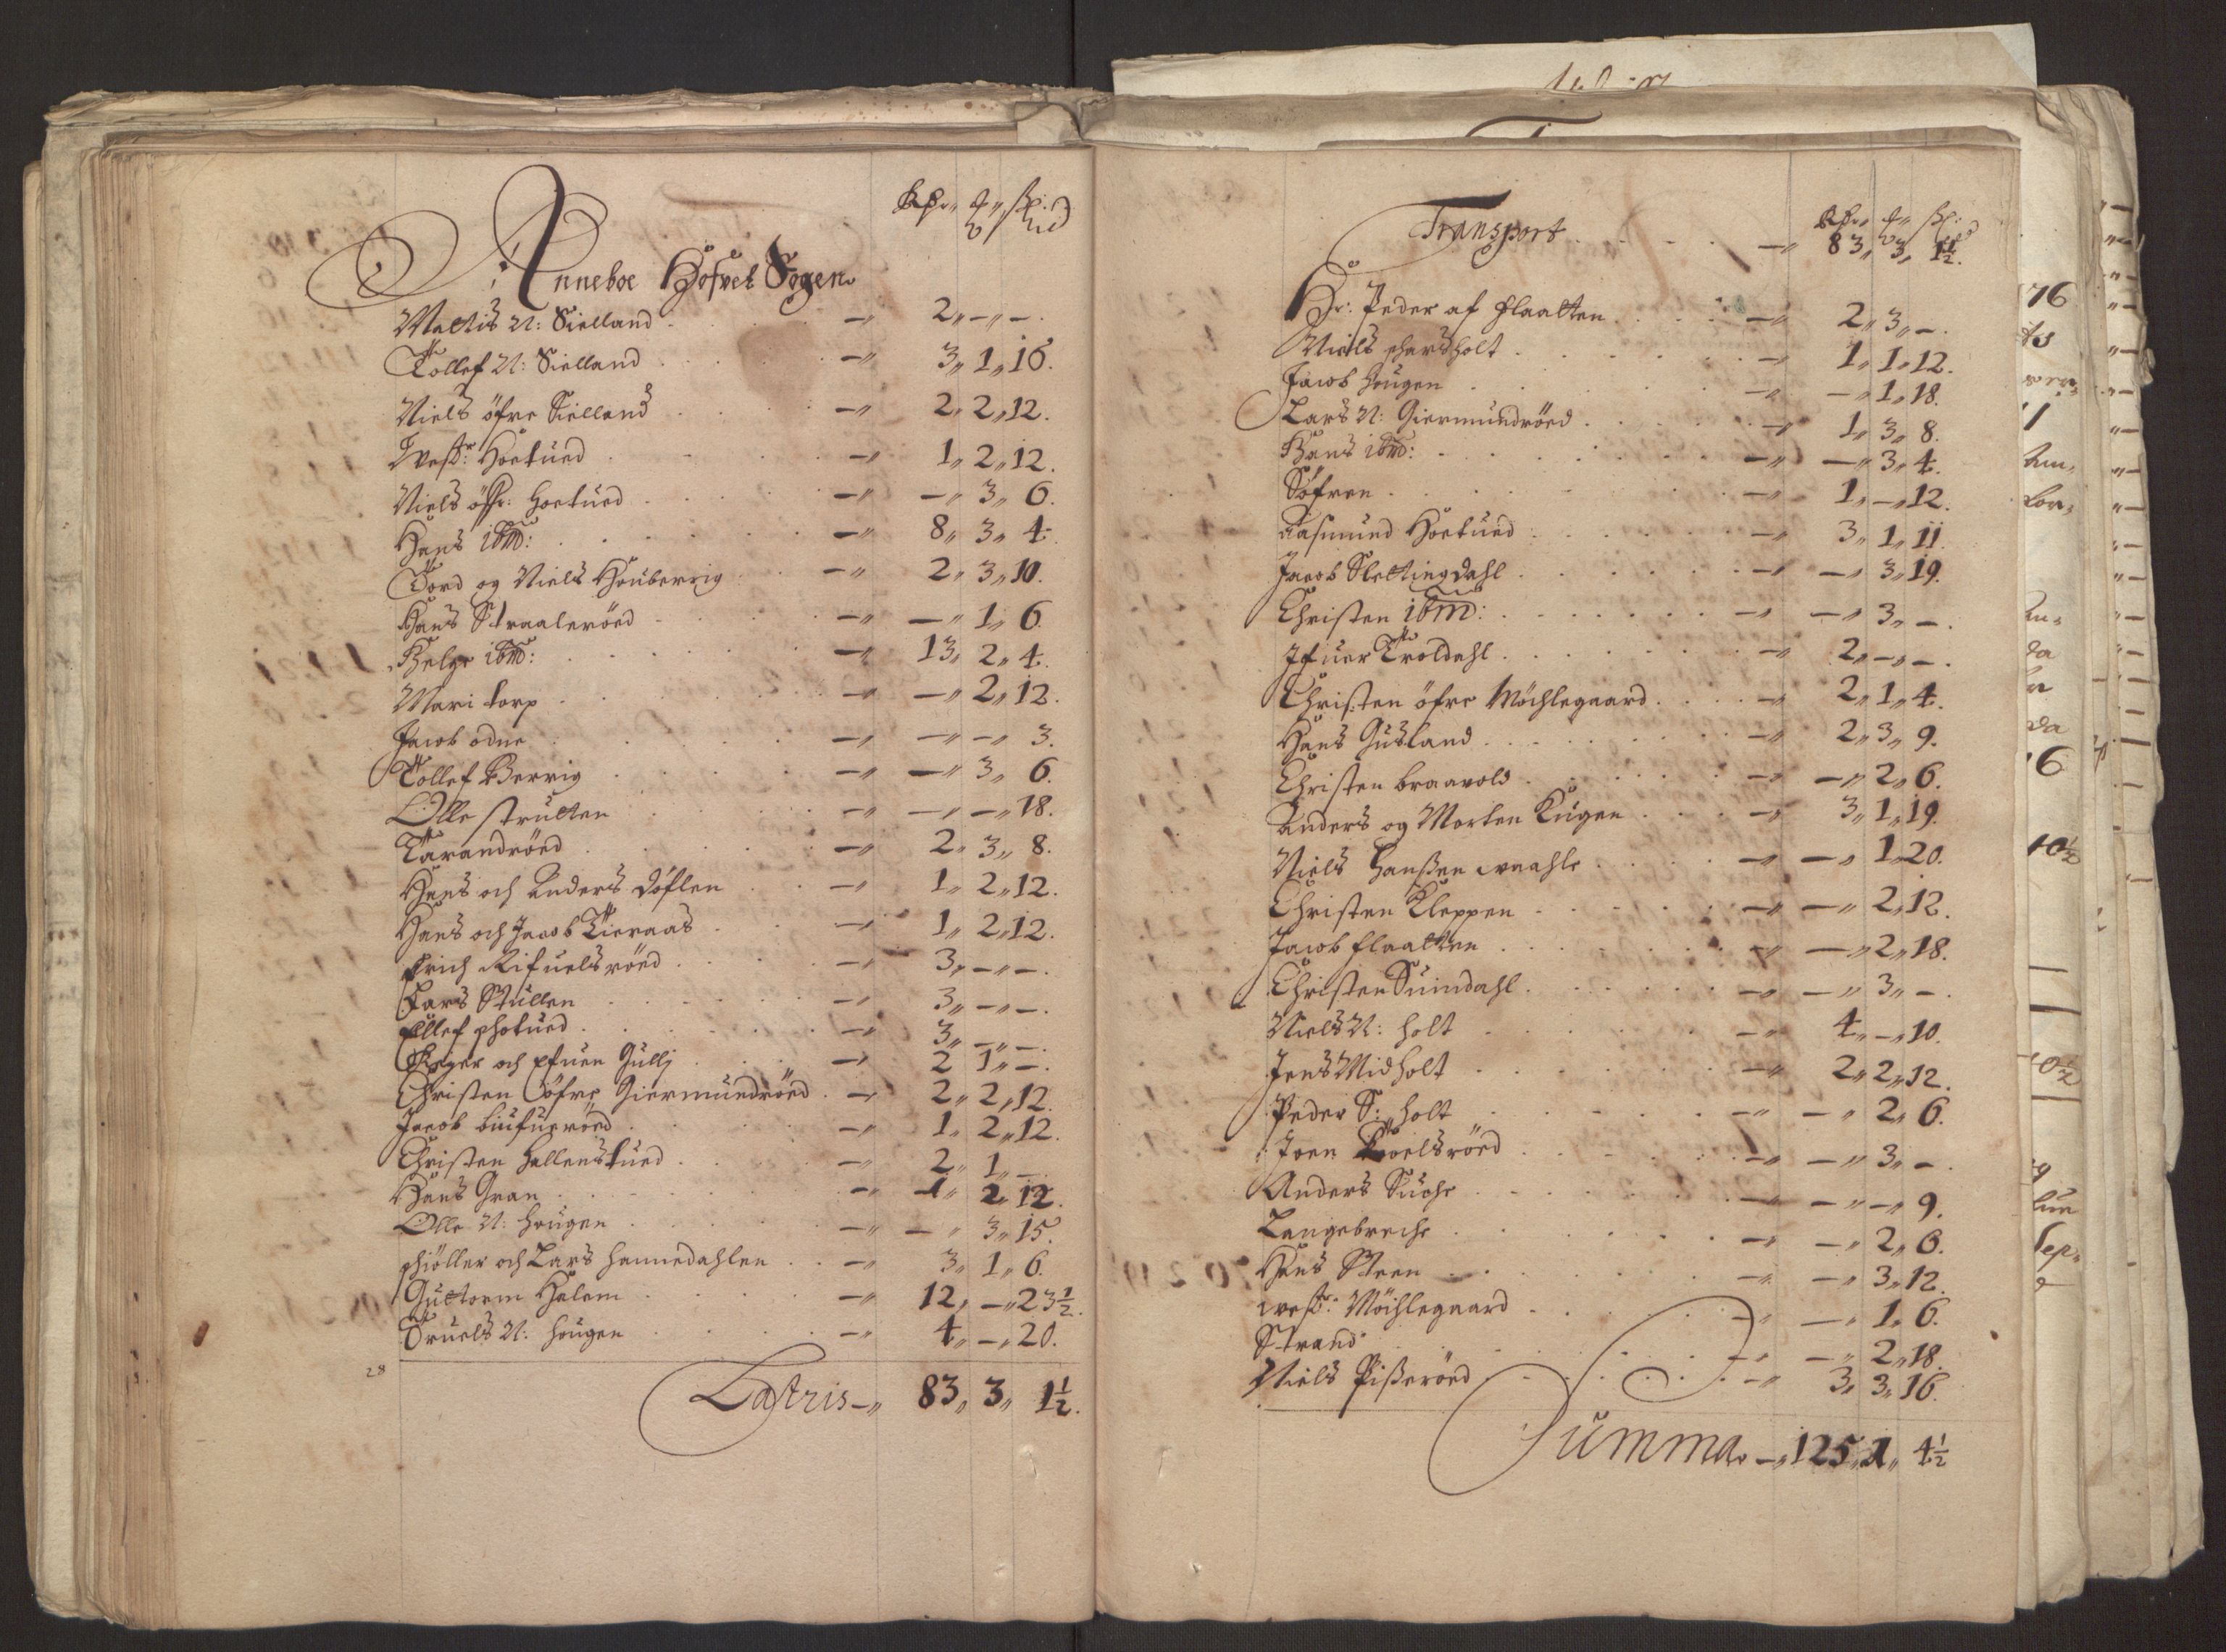 Rdr., q,, sk:
Anneboe Hofvet Sogen
Mattis N: Sielland – 2,, – ,, – .
Tollef N: Sielland – 3,, 1,, 16.
Niels öfre Sielland – 2,, 2,, 12.
Vest: Hoetued – 1,, 2,, 12.
Niels öffr: Hoetued – – ,, 3,, 6.
Hans ibm: – 8,, 3,, 4.
Tord og Niels Houberrig – 2,, 3,, 10.
Hans Straaleröed – – ,, 1,, 6.
Helge ibm: – 13,, 2,, 4.
Mari torp – – ,, 2,, 12.
Jacob odne – – ,, – ,, 3.
Tollef Berrig – – ,, 3,, 6.
Olle strutten – – ,, – ,, 18.
Tarandröed – 2,, 3,, 8.
Hans och Anders döflen – 1,, 2,, 12.
Hans och Jacob Tieraas – 1,, 2,, 12.
Erich Rifuelsröed – 3,, – ,, – .
Lars Stullen – 3,, – ,, – .
Ellef photued – 3,, – ,, – .
och Efuen Gullj – 2 1,, – .
Christen öfre Giermundröed – 2,, 2,, 12.
Jacob buifueröed – 1,, 2,, 12.
Christen Hallenstued – 2,, 1,, –
Hans Gran – 1,, 2,, 12.
Olle N: Hougen – – ,, 3,, 15.
och Lars Hannedahlen – 3,, 1,, 6.
Guttorm Halem – 12,, – ,, 23½.
Truels N: Hougen – 4,, – ,, 20.
28
Lastris – ,, 83,, 3,, 1½.
Transport – ,, 83,, 3,, 1½.
Rdr,, q,, sk:
Hr: Peder af Flaatten – 2,, 3,, – .
Niels pharsholt – 1,, 1,, 12.
Jacob Hougen – – ,, 1,, 18.
Lars N: Giermundröed – 1,, 3,, 8.
Hans ibm: – – ,, 3,, 4.
Söfren – 1,, – ,, 12.
Aasmund Hoetued – 3,, 1,, 11.
Jacob Slettingdahl – – ,, 3,, 19.
Christen ibm: – – ,, 3,, – .
Ifuer Troldahl – 2,, – ,, – .
Christen öfre Möchlegaard – 2,, 1,, 4.
Hans Gusland – 2,, 3,, 9.
Christen braavold – – ,, 2,, 6.
Anders og Morten Kugen – 3,, 1,, 19.
Niels Hanßen waahle – – ,, 1,, 20.
Christen Kleppen – – ,, 2,, 12.
Jacob Flaatten – – ,, 2,, 18.
Christen Suindahl – – ,, 3,, – .
Niels N: Holt – 4,, – ,, 10.
Jens Midholt – 2,, 2,, 12.
Peder S: Holt – – ,, 2,, 6.
Joen Troelsröed – – ,, 3,, – .
Anders Suche – – ,, – ,, 9.
Langebreche – – ,, 2,, 6.
Hans Steen – – ,, 3,, 12.
west: Möchlegaard – – ,, 1,, 6.
Strand – – ,, 2,, 18.
Niels Pißeröed – 3,, 3,, 16.
Summa – ,, 125,, 1,, 4½